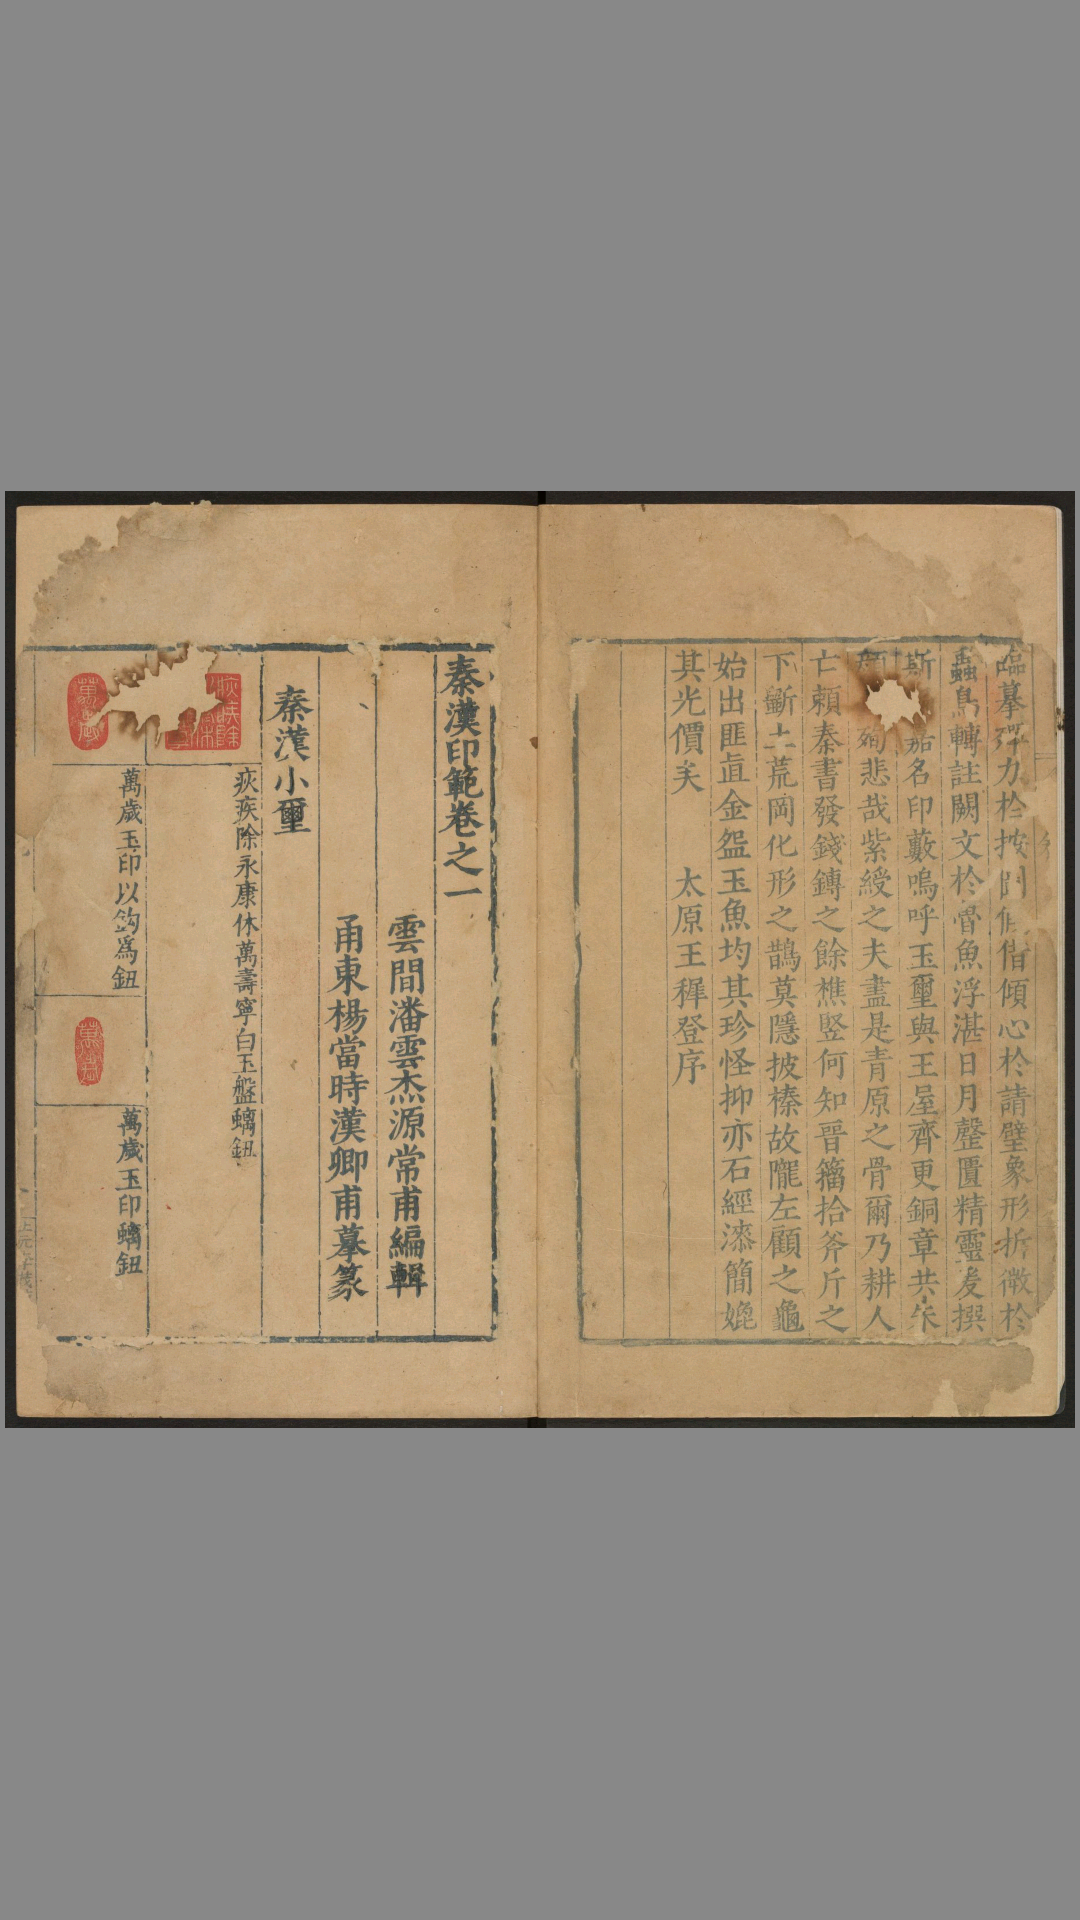 臨摹殫力於按鬥假借傾心於請璧象形折徵於
蟲鳥轉註闕文於魯魚浮湛日月罄匱精靈爰撰
斯 茄名印藪嗚呼玉璽與王屋齊更銅章共朱
顏 殉悲哉紫綬之夫盡是青原之骨爾乃耕人
亡賴秦書發錢鎛之餘樵豎何知晋籀拾斧斤之
下斸土荒岡化形之鵲莫隱披榛故隴左顧之龜
始出匪直金盌玉魚均其珍怪抑亦石經漆簡媲
其光價矣 太原王穉登序
秦漢印範卷之一
雲間潘雲杰源常甫編輯
甬東楊當時漢卿甫摹篆
秦漢小璽
疢疾除永康休萬壽寧白玉盤螭鈕
萬歲玉印以鈎爲鈕
萬歲玉印螭鈕